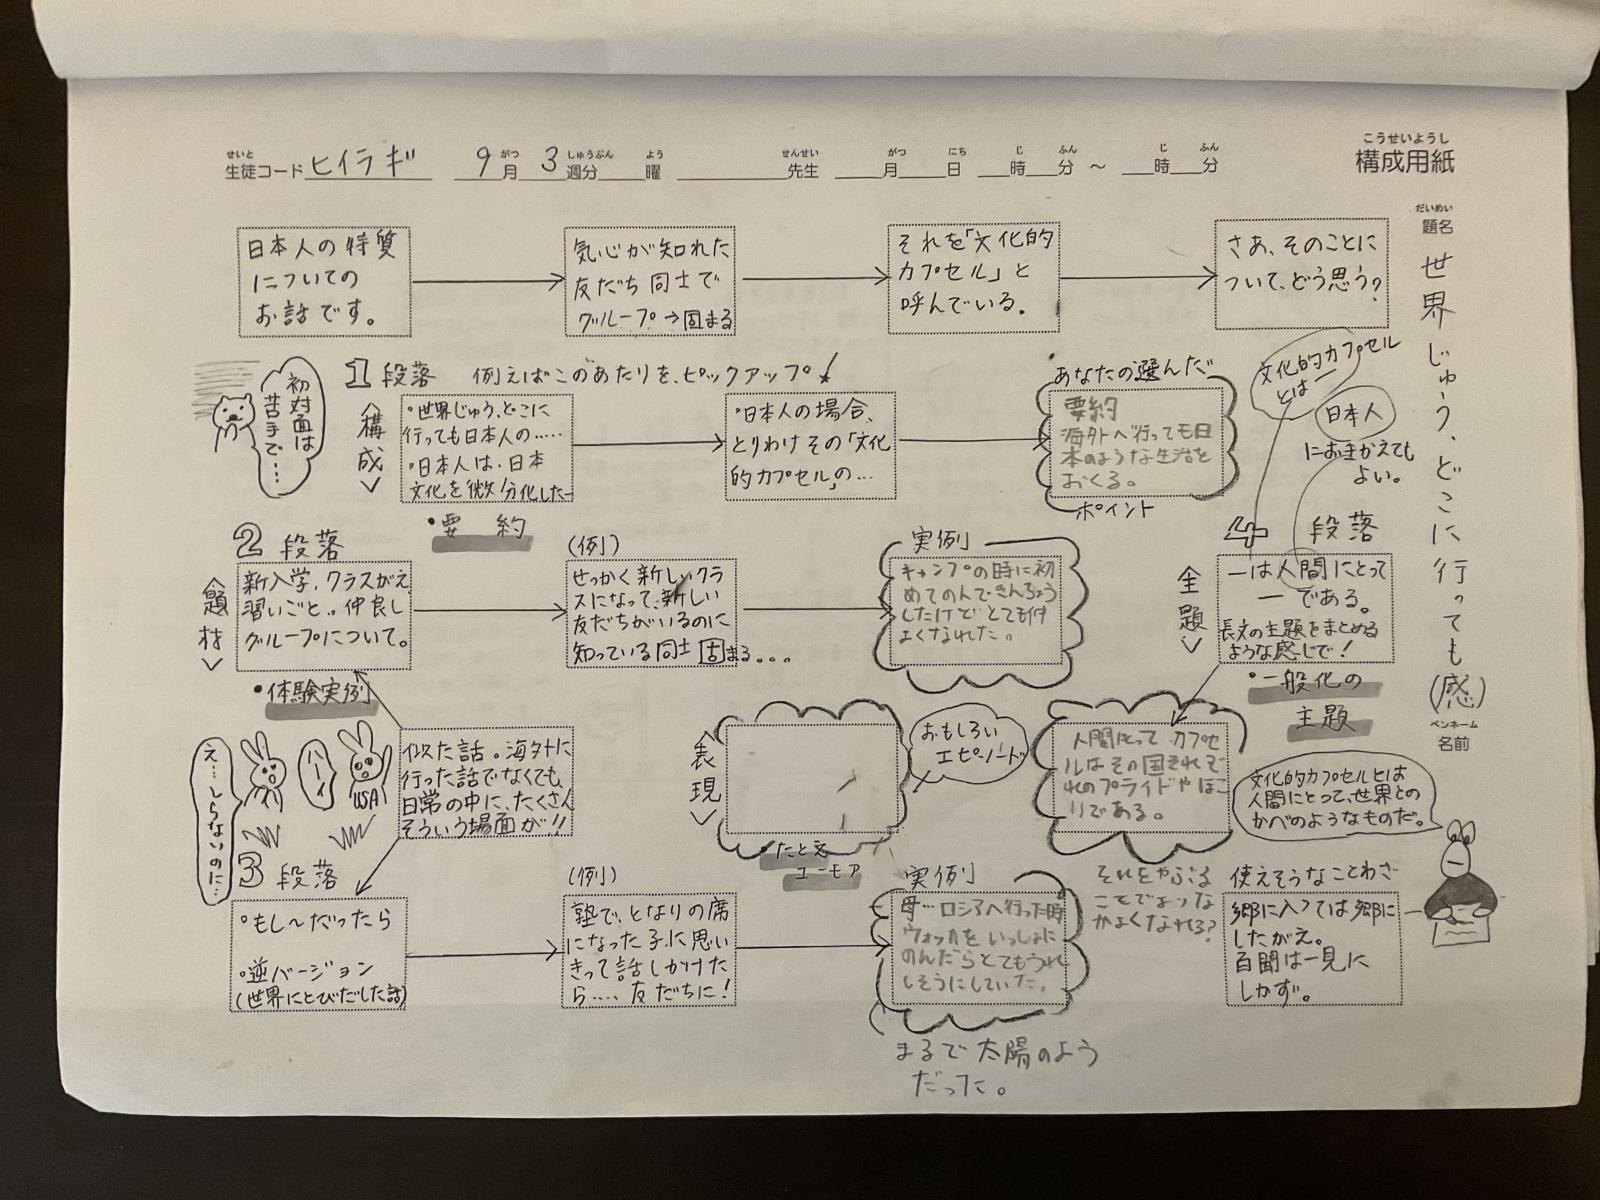 こうせいようし
構成用紙
せいと がつ しゅうぶん よう せんせい がつ にち じ ふん じ ふん
生徒コード ヒイラギ 9月 3週分 曜 先生 月 日 時 分 ～ 時 分
だいめい
題名
世界じゅう、どこに行っても(感)
ペンネーム
名前
日本人の特質
についての
お話です。
気心が知れた
友だち同士で
グループ→固まる
それを「文化的
カプセル」と
呼んでいる。
さあ、そのことに
ついて、どう思う?
初対面は
苦手で…
1段落 例えばこのあたりを、ピックアップ!
<構成>
・世界じゅう、どこに
行っても日本人の……
・日本人は、日本
文化を微分化した―
・要約
・日本人の場合、
とりわけその「文化
的カプセル」の…
・あなたの選んだ
要約
海外へ行っても日
本のような生活を
おくる。
ポイント
文化的カプセル
とは―
日本人
におきかえても
よい。
2段落
<題材>
新入学、クラスがえ、
習いごと。。仲良し
グループについて。
・体験実例
(例)
せっかく新しいクラ
スになって、新しい
友だちがいるのに
知っている同士固まる。。。
実例
キャンプの時に初
めての人できんちょう
したけどとても仲
よくなれた。
4段落
<主題>
―は人間にとって
―である。
長文の主題をまとめる
ような感じで!
・一般化の
主題
え…しらないのに…
ハーイ
USA
似た話。海外に
行った話でなくても、
日常の中に、たくさん
そういう場面が!!
<表現>
おもしろい
エピソード
・たとえ
ユーモア
人間にとってカプセ
ルはその国それぞ
れのプライドやほこ
りである。
それをやぶる
ことでよりな
かよくなれる?
文化的カプセルとは
人間にとって、世界との
かべのようなものだ。
3段落
・もし～だったら
・逆バージョン
(世界にとびだした話)
(例)
塾で、となりの席
になった子に思い
きって話しかけた
ら…、友だちに!
実例
母…ロシアへ行った時
ウォッカをいっしょに
のんだらとてもうれ
しそうにしていた。
まるで太陽のよう
だった。
使えそうなことわざ
郷に入っては郷に
したがえ。
百聞は一見に
しかず。